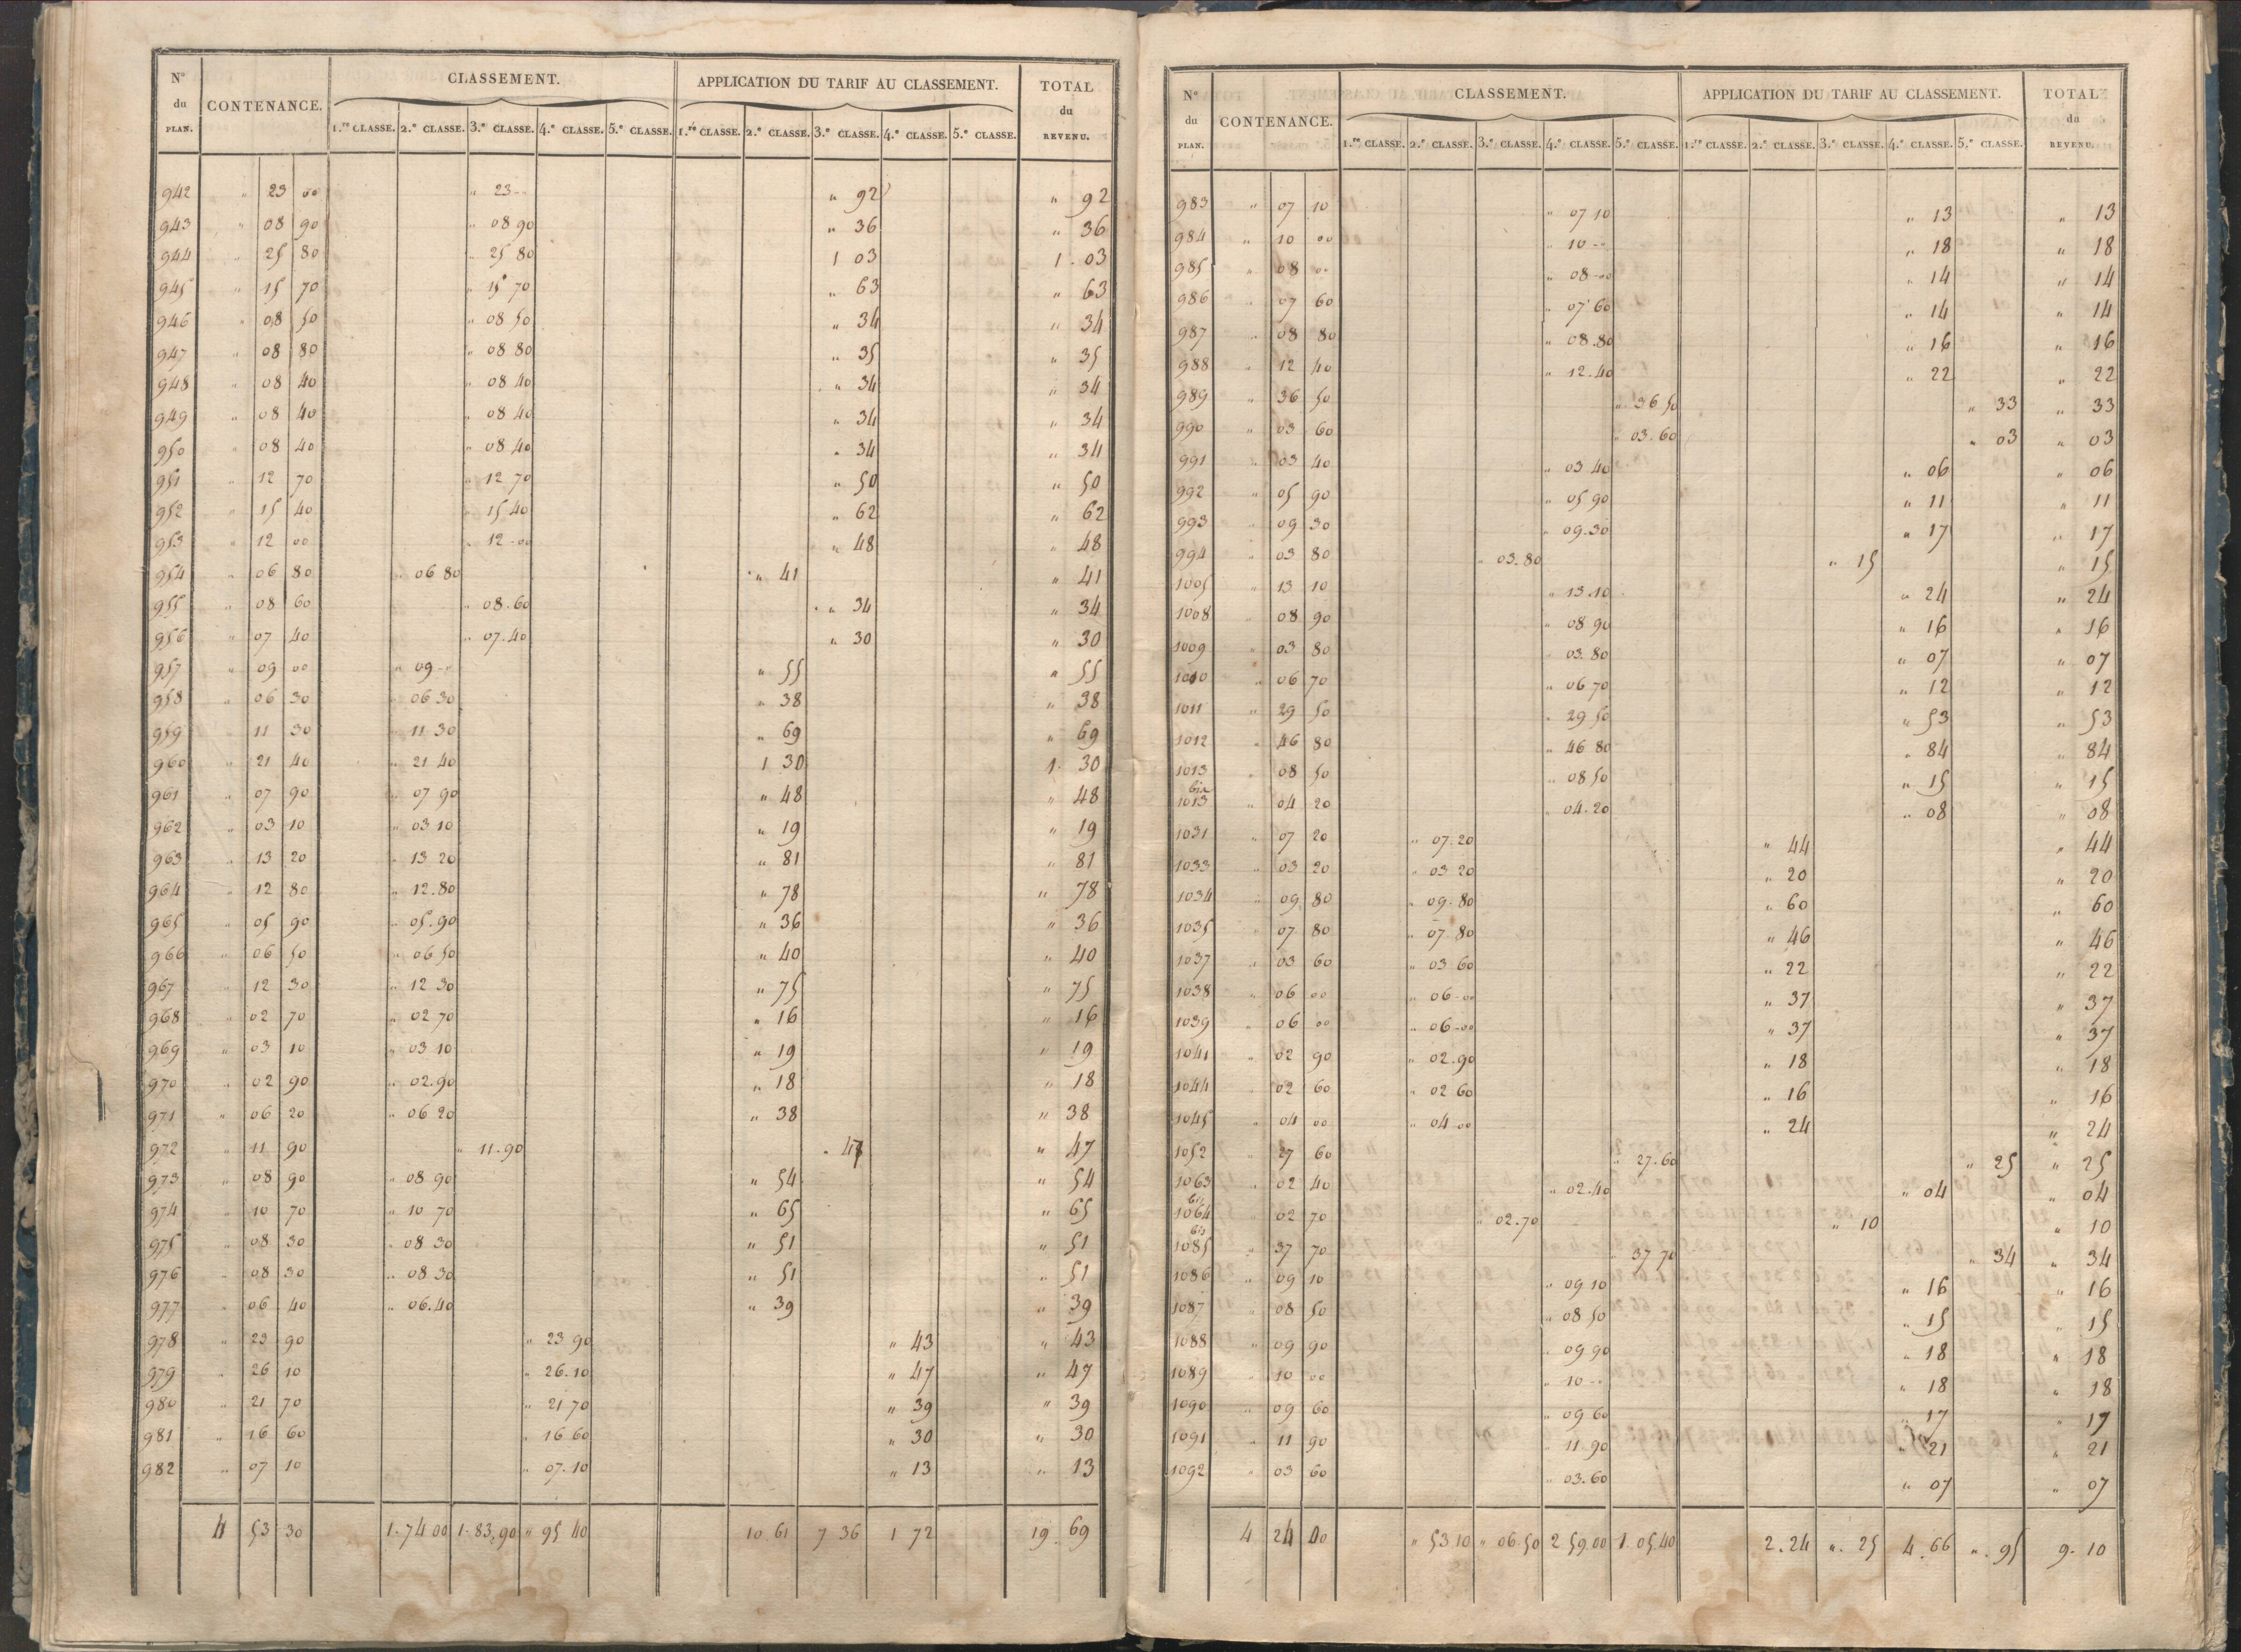 N° du PLAN. CONTENANCE. CLASSEMENT. APPLICATION DU TARIF AU CLASSEMENT. TOTAL du REVENU.
1.re CLASSE. 2.e CLASSE. 3.e CLASSE. 4.e CLASSE. 5.e CLASSE. 1.re CLASSE. 2.e CLASSE. 3.e CLASSE. 4.e CLASSE. 5.e CLASSE.
942 " 23 00 " 23 - - " 92 " 92
943 " 08 90 " 08 90 " 36 " 36
944 " 25 80 " 25 80 1 03 1. 03
945 " 15 70 " 15 70 " 63 " 63
946 " 08 50 " 08 50 " 34 " 34
947 " 08 80 " 08 80 " 35 " 35
948 " 08 40 " 08 40 " 34 " 34
949 " 08 40 " 08 40 " 34 " 34
950 " 08 40 " 08 40 " 34 " 34
951 " 12 70 " 12 70 " 50 " 50
952 " 15 40 " 15 40 " 62 " 62
953 " 12 00 " 12-00 " 48 " 48
954 " 06 80 " 06 80 " 41 " 41
955 " 08 60 " 08.60 " 34 " 34
956 " 07 40 " 07.40 " 30 " 30
957 " 09 00 " 09 - - " 55 " 55
958 " 06 30 " 06 30 " 38 " 38
959 " 11 30 " 11 30 " 69 " 69
960 " 21 40 " 21 40 1 30 1. 30
961 " 07 90 " 07 90 " 48 " 48
962 " 03 10 " 03 10 " 19 " 19
963 " 13 20 " 13 20 " 81 " 81
964 " 12 80 " 12.80 " 78 " 78
965 " 05 90 " 05.90 " 36 " 36
966 " 06 50 " 06 50 " 40 " 40
967 " 12 30 " 12 30 " 75 " 75
968 " 02 70 " 02 70 " 16 " 16
969 " 03 10 " 03 10 " 19 " 19
970 " 02 90 " 02.90 " 18 " 18
971 " 06 20 " 06 20 " 38 " 38
972 " 11 90 " 11.90 " 47 " 47
973 " 08 90 " 08 90 " 54 " 54
974 " 10 70 " 10 70 " 65 " 65
975 " 08 30 " 08 30 " 51 " 51
976 " 08 30 " 08 30 " 51 " 51
977 " 06 40 " 06.40 " 39 " 39
978 " 23 90 " 23 90 " 43 " 43
979 " 26 10 " 26.10 " 47 " 47
980 " 21 70 " 21 70 " 39 " 39
981 " 16 60 " 16 60 " 30 " 30
982 " 07 10 " 07.10 " 13 " 13
4 53 30 1.74 00 1.83,90 " 95 40 10.61 7 36 1 72 19.69
N° du PLAN. CONTENANCE. CLASSEMENT. APPLICATION DU TARIF AU CLASSEMENT. TOTAL du REVENU.
1.re CLASSE. 2.e CLASSE. 3.e CLASSE. 4.e CLASSE. 5.e CLASSE. 1.re CLASSE. 2.e CLASSE. 3.e CLASSE. 4.e CLASSE. 5.e CLASSE.
983 " 07 10 " 07 10 " 13 " 13
984 " 10 00 " 10 - - " 18 " 18
985 " 08 00 " 08-00 " 14 " 14
986 " 07 60 " 07 60 " 14 " 14
987 " 08 80 " 08.80 " 16 " 16
988 " 12 40 " 12.40 " 22 " 22
989 " 36 50 " 36 50 " 33 " 33
990 " 03 60 " 03.60 " 03 " 03
991 " 03 40 " 03 40 " 06 " 06
992 " 05 90 " 05 90 " 11 " 11
993 " 09 30 " 09.30 " 17 " 17
994 " 03 80 " 03.80 " 15 " 15
1005 " 13 10 " 13.10 " 24 " 24
1008 " 08 90 " 08 90 " 16 " 16
1009 " 03 80 " 03.80 " 07 " 07
1010 " 06 70 " 06 70 " 12 " 12
1011 " 29 50 " 29 50 " 53 " 53
1012 " 46 80 " 46 80 " 84 " 84
1013 " 08 50 " 08 50 " 15 " 15
bis 1013 " 04 20 " 04.20 " 08 " 08
1031 " 07 20 " 07.20 " 44 " 44
1033 " 03 20 " 03 20 " 20 " 20
1034 " 09 80 " 09.80 " 60 " 60
1035 " 07 80 " 07.80 " 46 " 46
1037 " 03 60 " 03 60 " 22 " 22
1038 " 06 00 " 06-00 " 37 " 37
1039 " 06 00 " 06-00 " 37 " 37
1041 " 02 90 " 02.90 " 18 " 18
1044 " 02 60 " 02 60 " 16 " 16
1045 " 04 00 " 04 00 " 24 " 24
1052 " 27 60 " 27.60 " 25 " 25
1063 " 02 40 " 02.40 " 04 " 04
bis 1064 " 02 70 " 02.70 " 10 " 10
bis 1085 " 37 70 " 37 70 " 34 " 34
1086 " 09 10 " 09 10 " 16 " 16
1087 " 08 50 " 08 50 " 15 " 15
1088 " 09 90 " 09 90 " 18 " 18
1089 " 10 00 " 10 - - " 18 " 18
1090 " 09 60 " 09 60 " 17 " 17
1091 " 11 90 " 11.90 " 21 " 21
1092 " 03 60 " 03.60 " 07 " 07
4 24 00 " 53 10 " 06.50 2 59.00 1.05.40 2.24 ". 25 4.66 ". 95 9.10